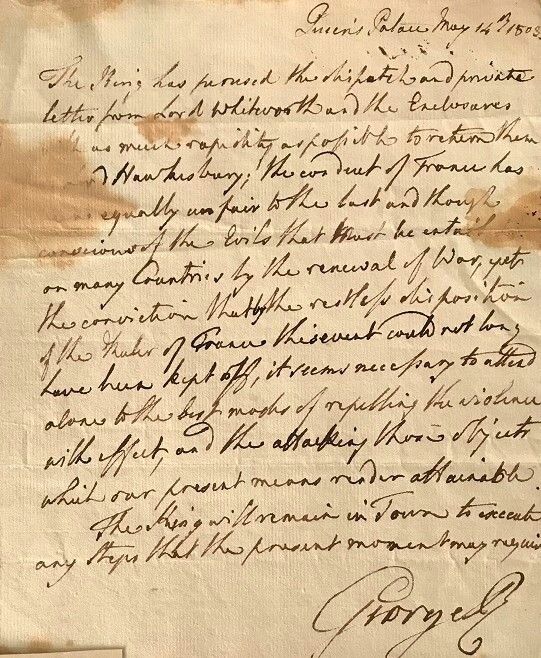 Queen's Palace May 14th 1803.
The King has perused the dispatch and private
letter from Lord Whitworth and the Enclosures
as much rapidity as possible to return them
Hawkesbury; the conduct of France has
equally unfair to the last and though
conscious of the Evils that must be entail
on many Countries by the renewal of War, yet
the conviction that by the restless disposition
of the Ruler of France this event could not long
have been kept off, it seems necessary to attend
alone to the best modes of repelling the violence
with effect, and the attacking those objects
which our present means render attainable.
The King will remain in Town to execute
any Steps that the present moment may require
George R